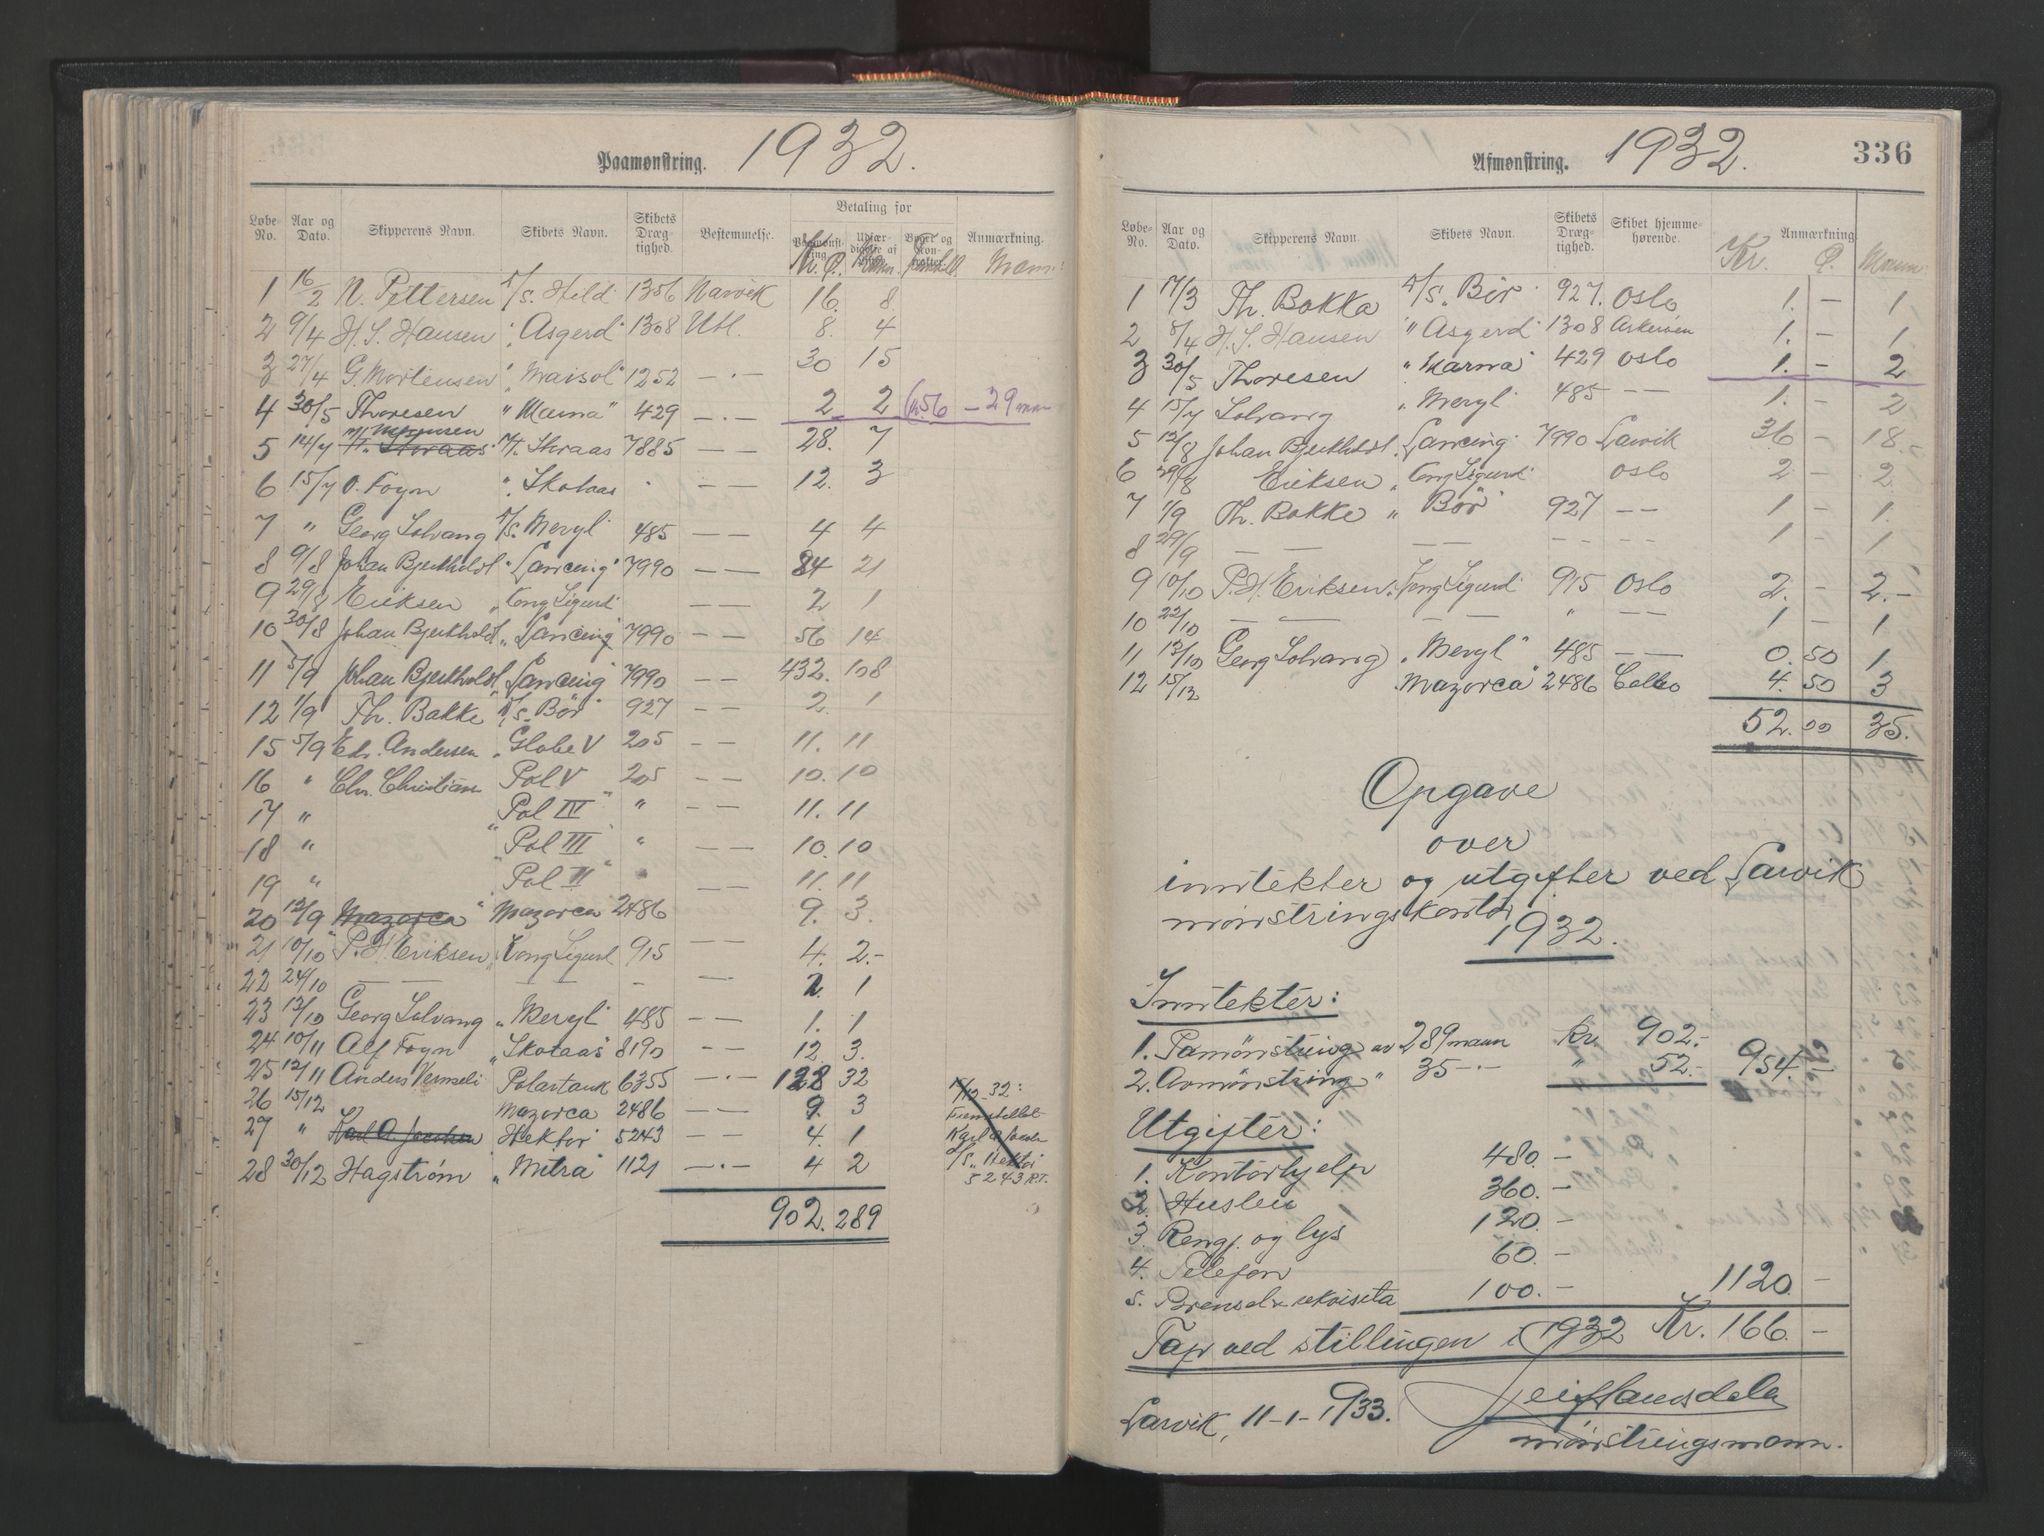 Paamønstring. 1932.
Løbe-No. Aar og Dato. Skipperens Navn. Skibets Navn. Skibets Dræg-tighed. Bestemmelse. Betaling for Anmærkning.
Kr. Ø. Mann.
1 16/2 N. Pettersen S/S. Hild 1356 Narvik 16. 8
2 9/4 H. S. Hansen " Asgerd" 1308 Utl. 8. 4
3 27/4 G. Mortensen " Maisol" 1252 — . — 30 15
4 30/5 Thoresen " Karma" 429 — . — 2 2 Kr. 56 — 29 mann
5 14/7 M. Mogensen M/T. Thraas 7885 — — 28. 7
6 15/7 O. Foyn ". Skotaas " — — 12. 3
7 " Georg Solvang S/S. Meryl 485 — — 4 4
8 9/8 Johan Bjerkholdt "Lancing" 7990 — — 84 21
9 29/8 Eriksen " Kong Sigurd — — 2 1
10 30/8 Johan Bjerkholdt " Lancing 7990 — — 56 14
11 5/9 Johan Bjerkholdt " Lancing 7990 — — 432. 108
12 1/9 Th. Bakke S/S. Bør 927 — — 2. 1
15 5/9 Edv. Andersen " Globe V 205 — — 11. 11
16 " Chr. Christian Pol V 205 — — 10. 10
17 " " Pol IV " — — 11. 11
18 " " Pol III " — — 10. 10
19 " " Pol II " " — — 11. 11
20 12/9 Mazorca " Mazorca 2486 — — 9. 3.
21 10/10 P. H. Eriksen " Kong Sigurd 915 — — 4. 2.-
22 24/10 — — — — — 2. 1
23 12/10 Georg Solvang " Meryl" 485 — — 1. 1
24 10/11 Alf Foyn " Skotaas" 8190 — — 12. 3.
25 12/11 Anders Vermeli Polartank 6355 — . — 128 32
26 15/12 Mazorca 2486 9. 3
27 " Karl A. Jacobsen Hektor 5243 4. 1
28 30/12 Hagstrøm " Mitra" 1121 — . — 4 2
902. 289
Karl A Jacobs
S/S. "Hektor"
5243 R.T.
Afmønstring. 1932. 336
Løbe-No. Aar og Dato. Skipperens Navn. Skibets Navn. Skibets Dræg-tighed. Skibet hjemme-hørende. Anmærkning
Kr. Ø. Mann.
1 17/3 Th. Bakka S/S. Bør 927. Oslo 1. — 1
2 8/4 H. S. Hansen " Asgerd 1308 1. — 1.
3 30/5 Thoresen " Karma" 429 Oslo 1. — 2
4 15/7 Solvang " Meryl 485 — — 1. — 2
5 12/8 Johan Bjerkholdt " Lancing 7990 Larvik 36 — 18.
6 29/8 Eriksen " Kong Sigurd Oslo 2 — 2.
7 1/9 Th. Bakke " Bør" 927 — — 1 — 1.
8 29/9 — — — — — — — — 1 — 1
9 10/10 P. H. Eriksen " Kong Sigurd 915 Oslo 2. — 2.-
10 22/10 — — — — " — — 1 — 1
11 12/10 Georg Solvang " Meryl" 485 — — 0. 50 1.
12 15/12 Mazorca" 2486 4. 50 3
52. 00 35.
Opgave
over
inntekter og utgifter ved Larvik
mønstringskontor
1932.
Inntekter:
1. Pamønstring av 289 mann kr. 902.-
2. Avmønstring " 35 - . - " 52.- 954.-
Utgifter:
1. Kontorhjelp 480. —
2. Husleie 360. —
3. Rengj. og lys 120. —
4. Telefon 60. —
5. Brensel & rekvisita 100. — 1120. —
Tap ved stillingen i 1932 Kr. 166. —
Larvik, 11-1-1933.
mønstringsmann.